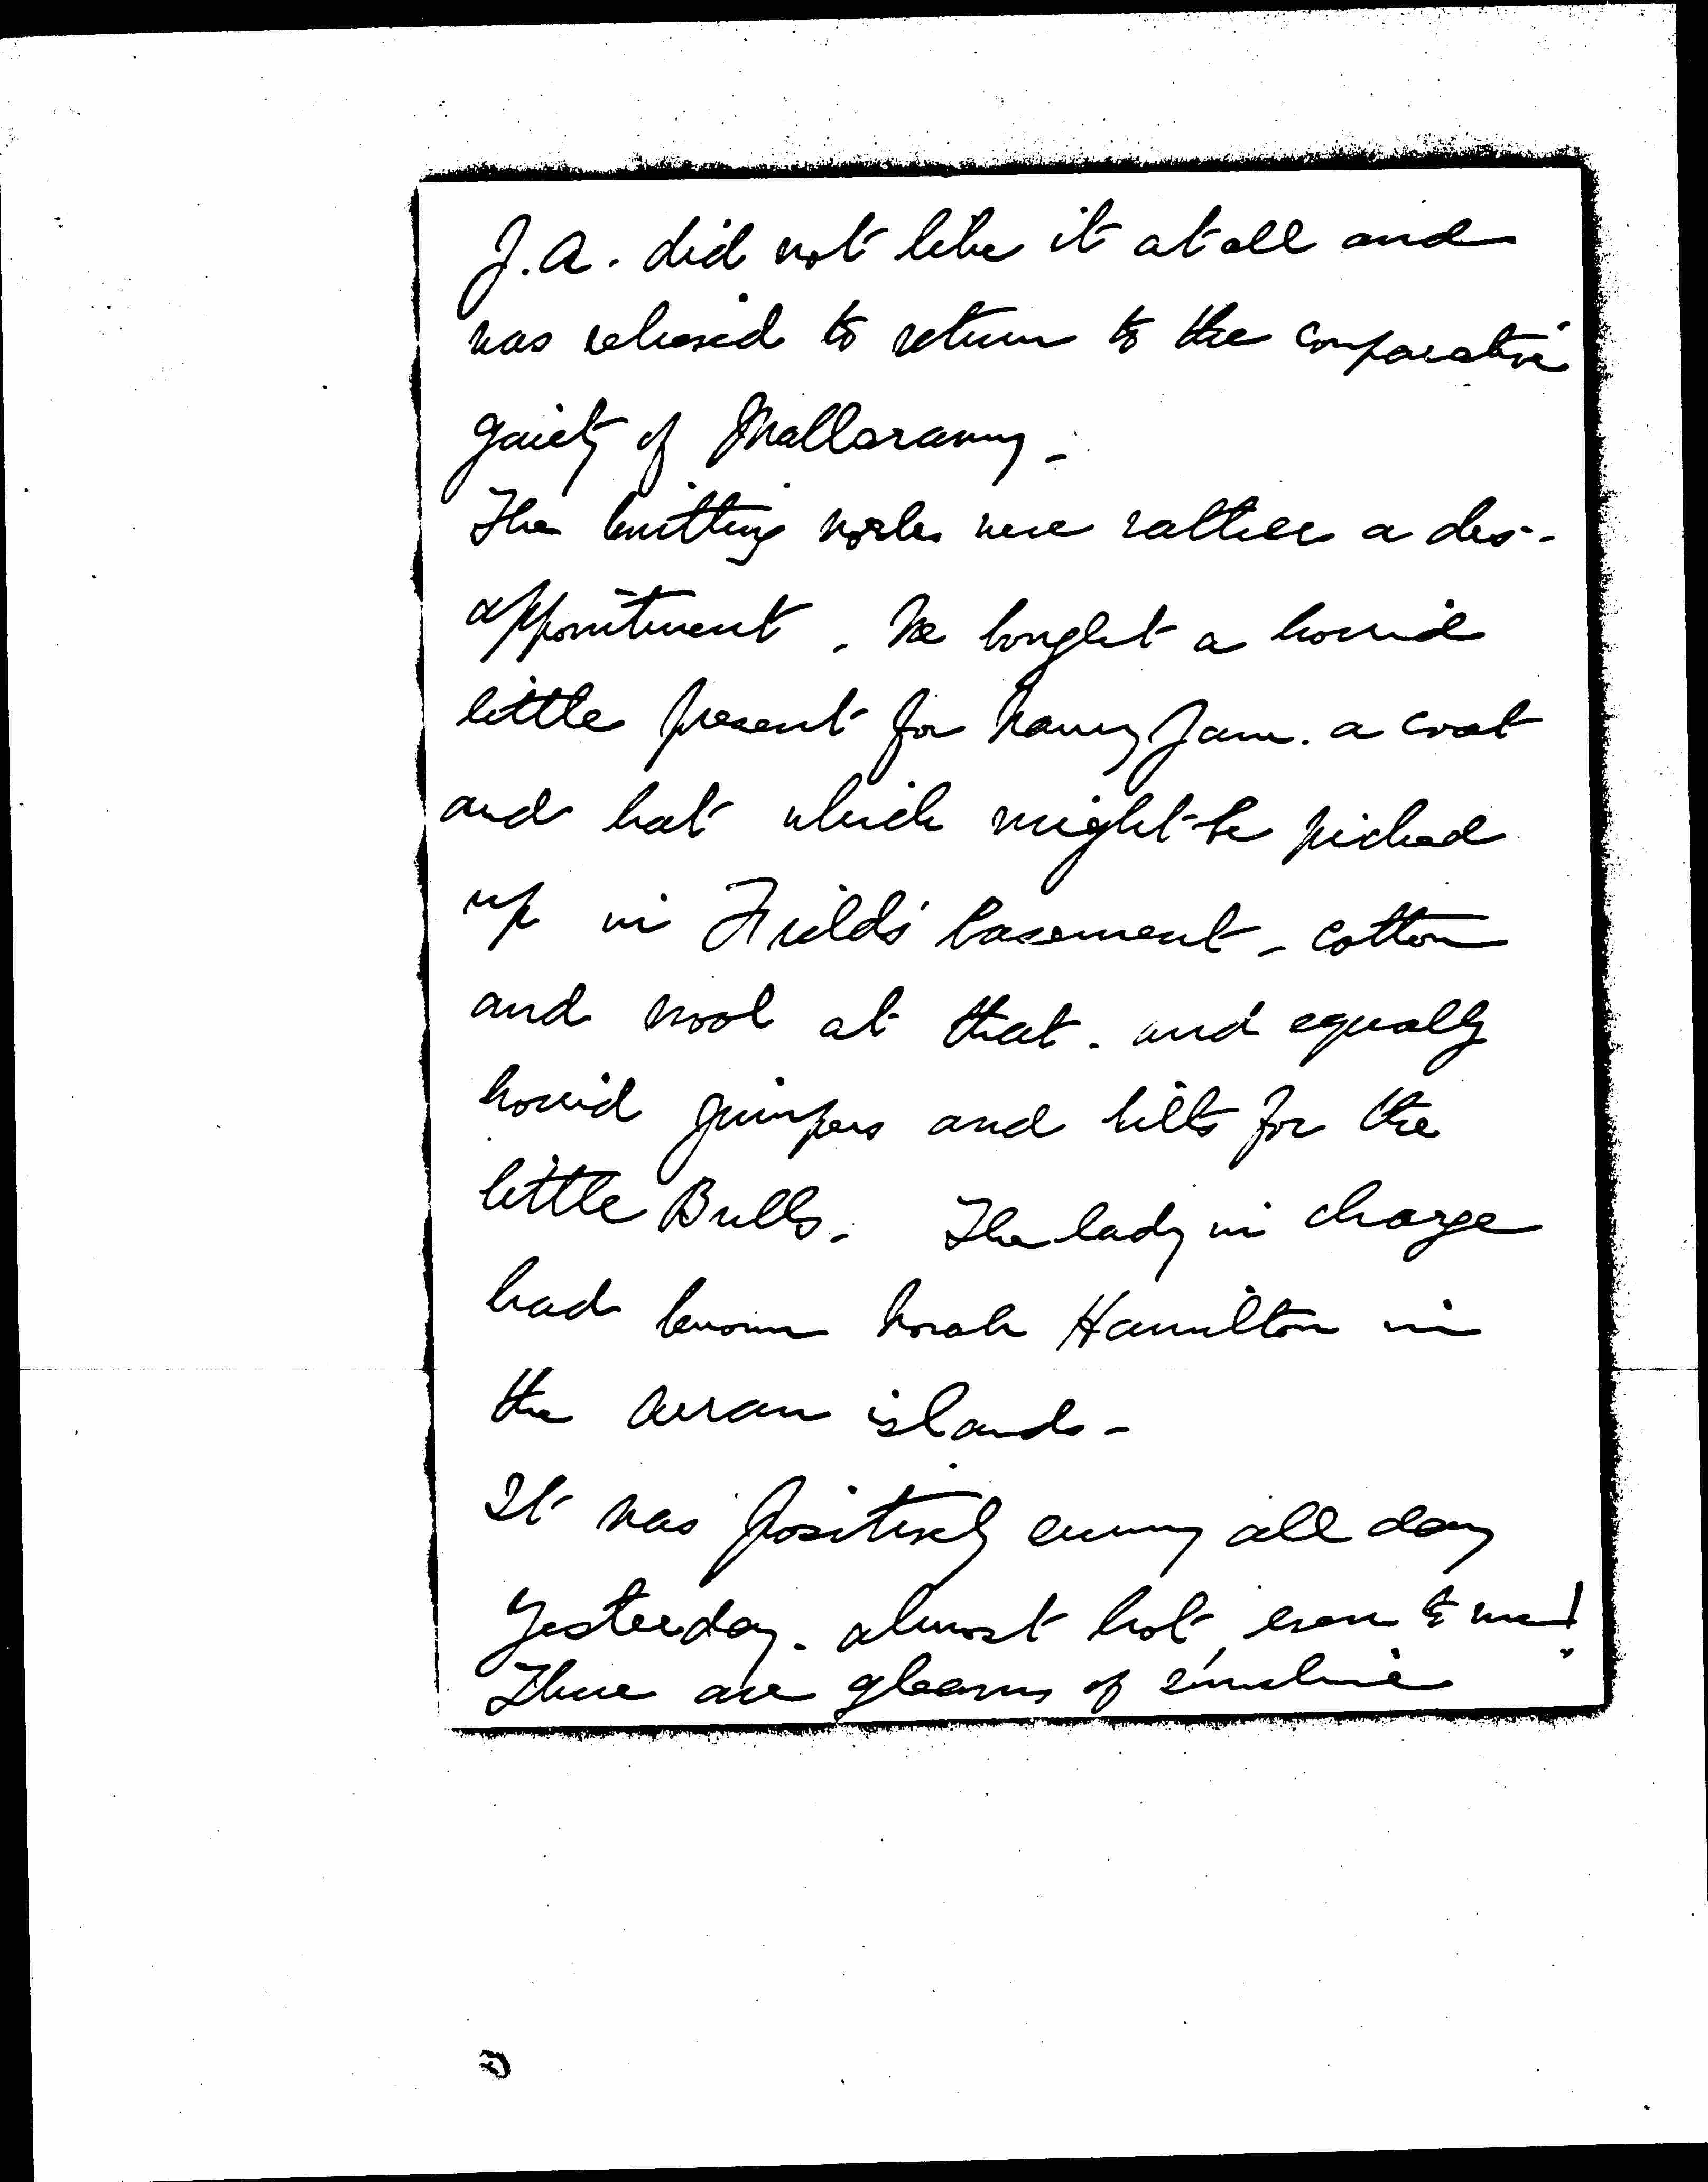 J.A. did not like it at all and
was relieved to return to the comparative
gaiety of Mallaranny -
The knitting works were rather a dis-
appointment. We bought a horrid
little present for Nancy Jane. a coat
and hat which might be picked
up in Field's basement - cotton
and wool at that. and equally
horrid jumpers and kilts for the
little Bulls. The lady in charge
had known Norah Hamilton in
the Arran islands -
It was positively sunny all day
yesterday. almost hot, even to me!
There are gleams of sunshine